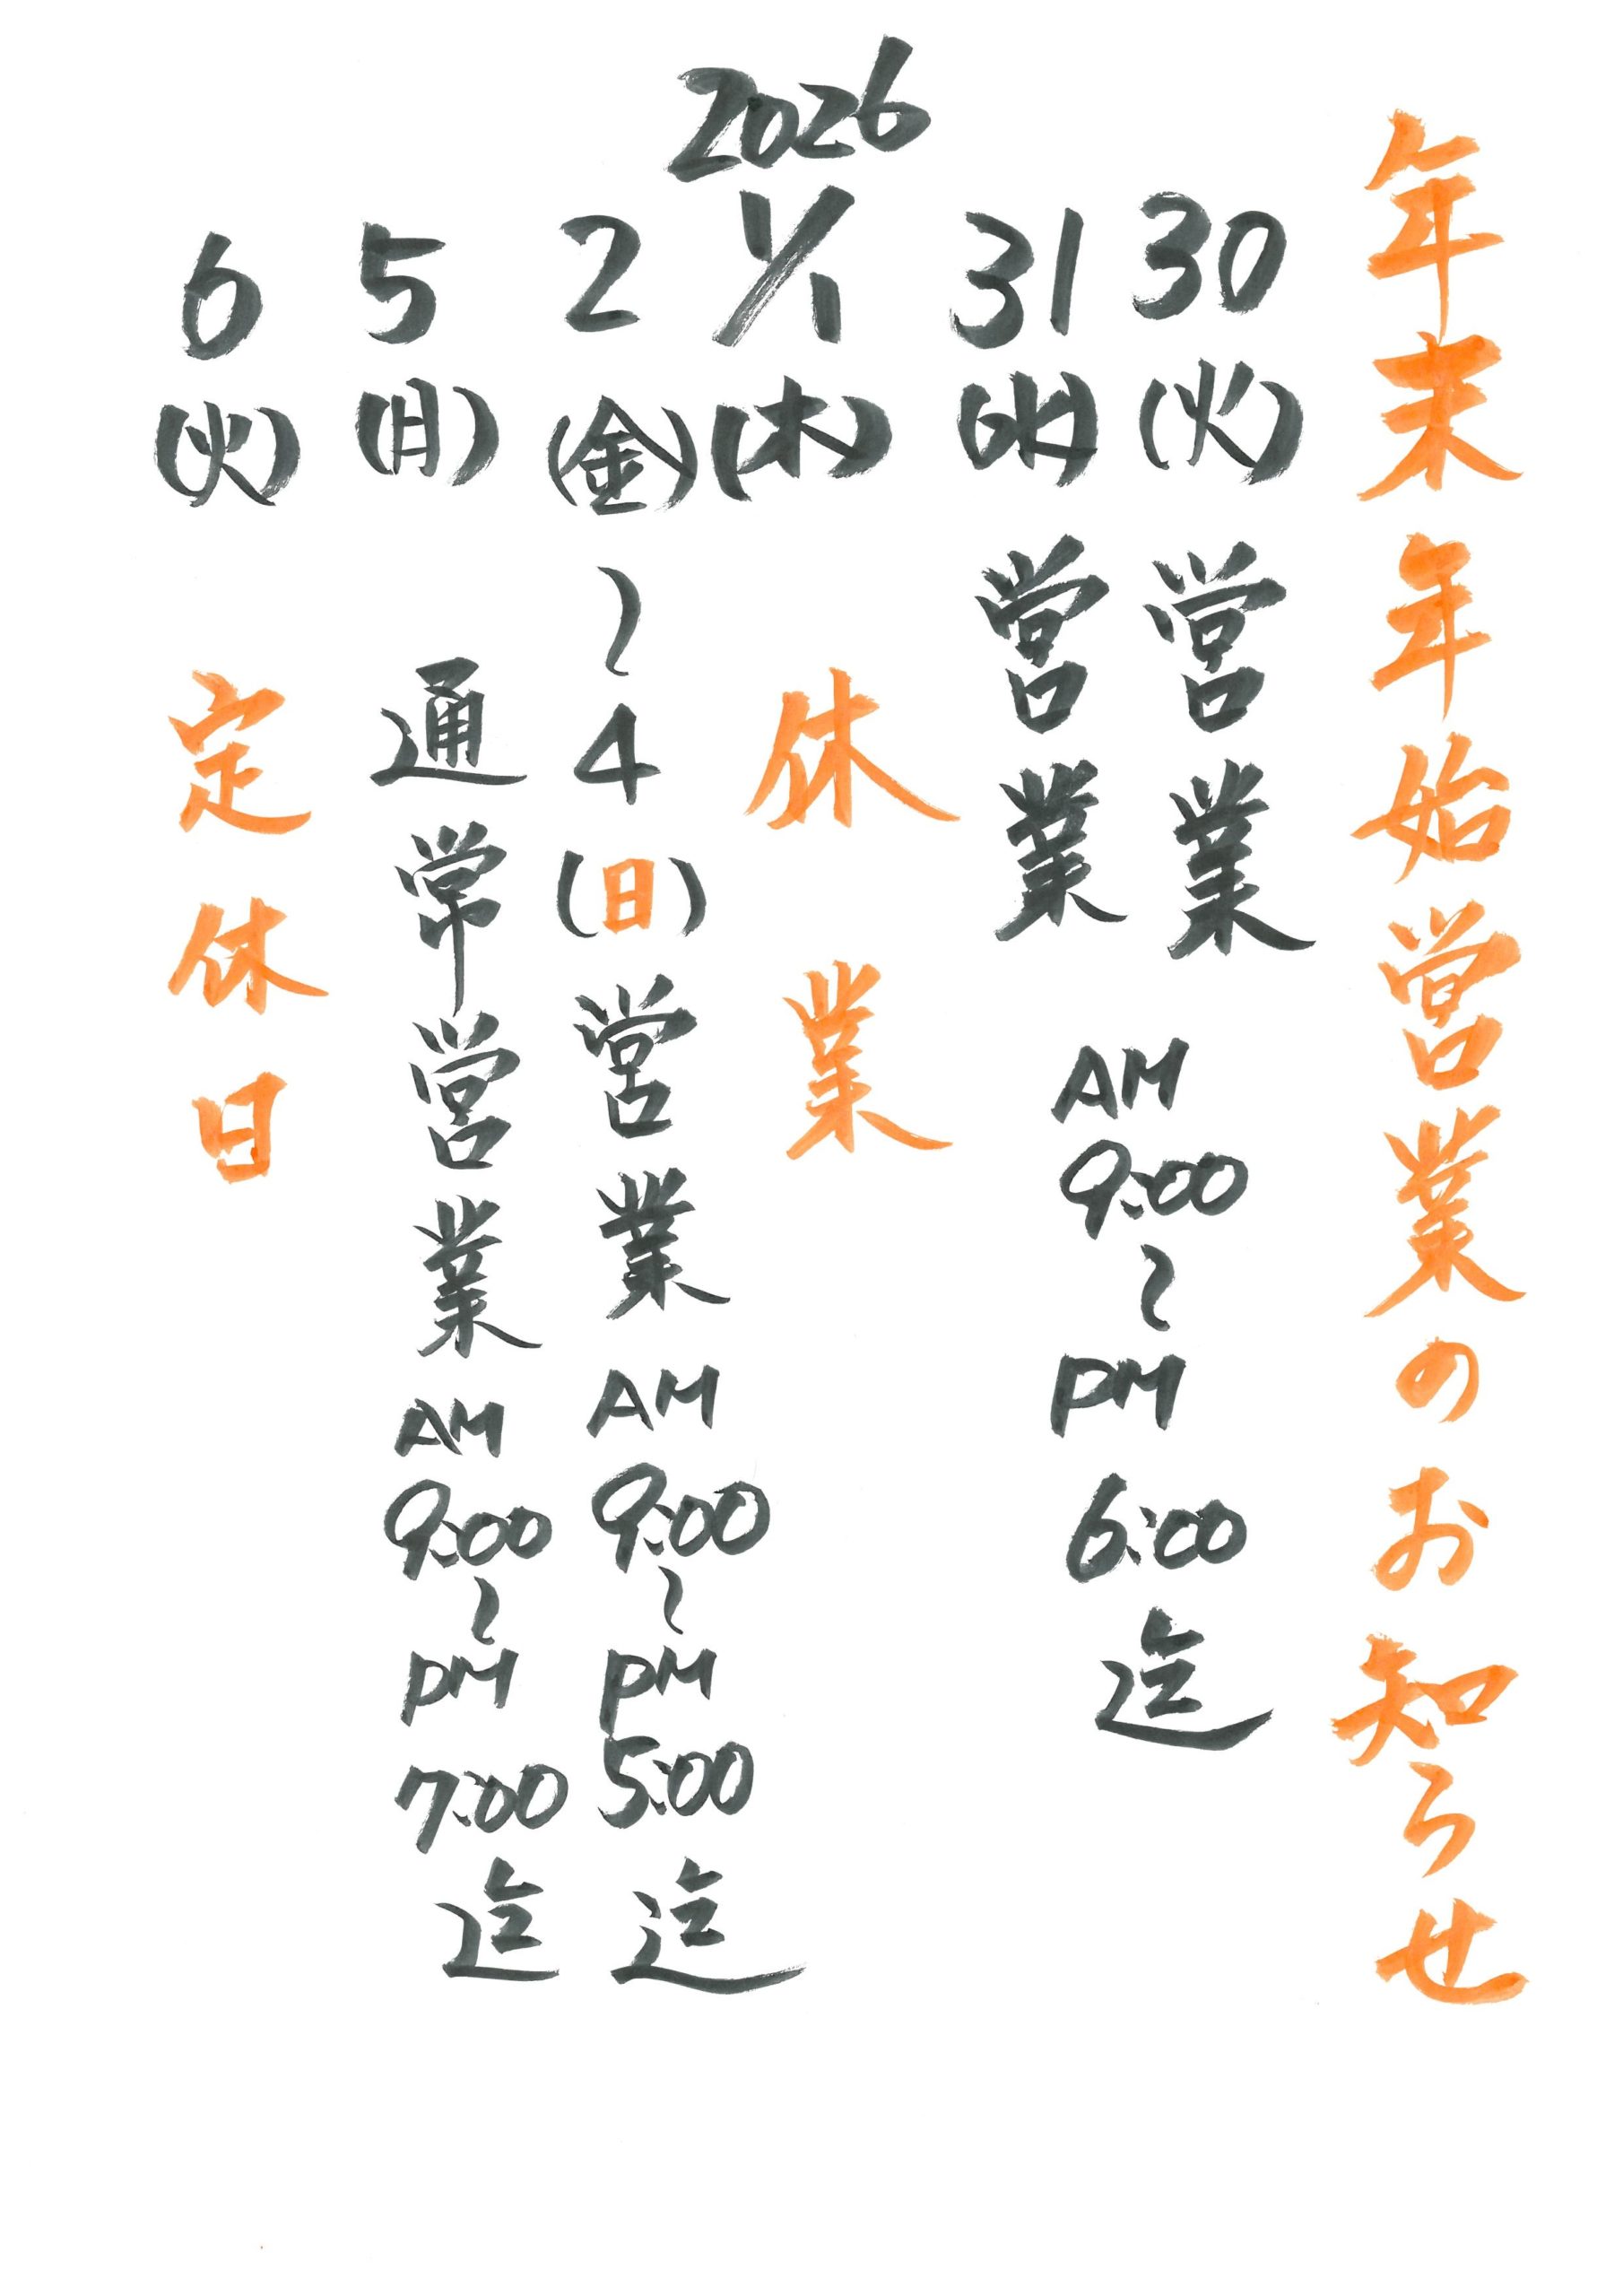 年末年始営業のお知らせ
30(火)営業
31(水)営業
AM9:00〜PM6:00迄
2026
1/1(木)休業
2(金)〜4(日)営業AM9:00〜PM5:00迄
5(月)通常営業AM9:00〜PM7:00迄
6(火)定休日